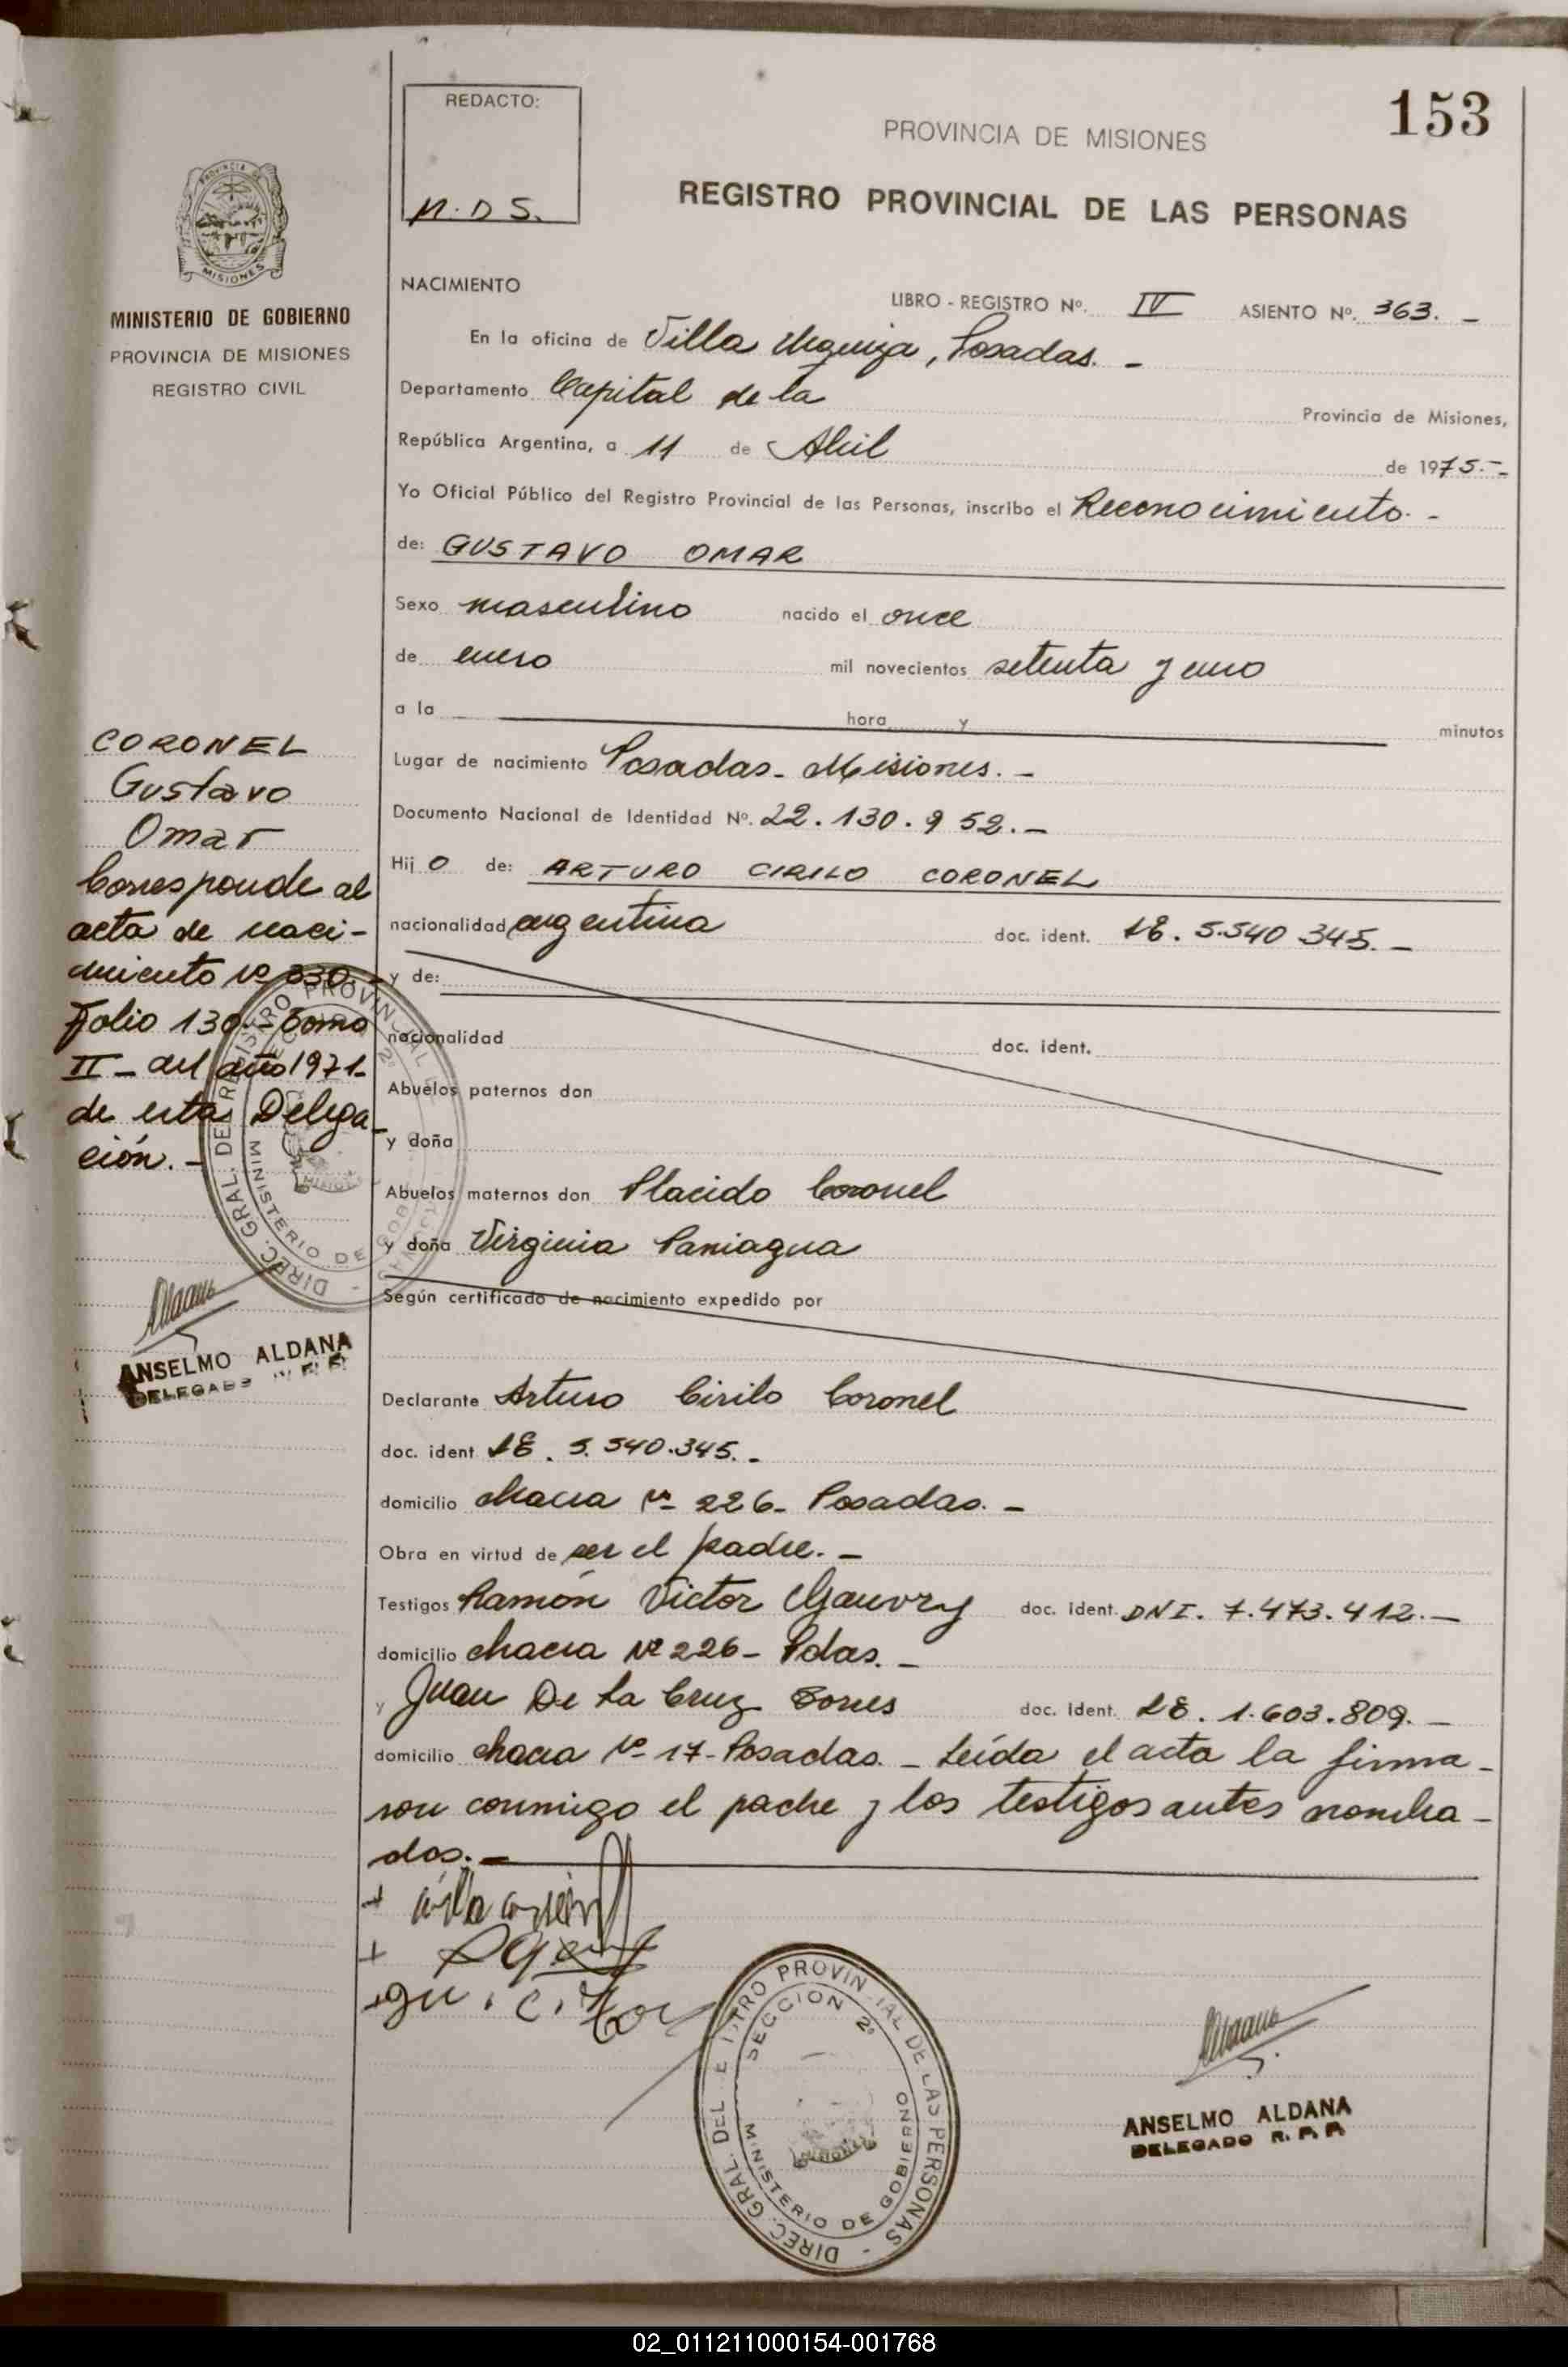 153
REDACTO:
M.D.S.
PROVINCIA DE MISIONES
REGISTRO PROVINCIAL DE LAS PERSONAS
PROVINCIA DE
MISIONES
MINISTERIO DE GOBIERNO
PROVINCIA DE MISIONES
REGISTRO CIVIL
NACIMIENTO
LIBRO - REGISTRO Nº. IV ASIENTO Nº. 363. -
En la oficina de Villa Urquiza, Posadas. -
Departamento Capital de la Provincia de Misiones,
República Argentina, a 11 de Abril de 1975.-
Yo Oficial Público del Registro Provincial de las Personas, inscribo el Reconocimiento. -
de: GUSTAVO OMAR
Sexo masculino nacido el once
de enero mil novecientos setenta y uno
a la hora y minutos
Lugar de nacimiento Posadas - Misiones. -
Documento Nacional de Identidad Nº. 22.130.952. -
Hij o de: ARTURO CIRILO CORONEL
nacionalidad argentina doc. ident. LE. 5.540.345. -
y de:
nacionalidad doc. ident.
Abuelos paternos don
y doña
Abuelos maternos don Placido Coronel
y doña Virginia Paniagua
Según certificado de nacimiento expedido por
Declarante Arturo Cirilo Coronel
doc. ident LE. 5.540.345. -
domicilio chacra Nº 226 - Posadas. -
Obra en virtud de ser el padre. -
Testigos Ramón Victor doc. ident. DNI. 7.473.412. -
domicilio chacra Nº 226 - Pdas. -
y Juan De la Cruz Torres doc. Ident. LE. 1.603.809. -
domicilio chacra Nº 17 - Posadas. - Leída el acta la firma-
ron conmigo el padre y los testigos antes nombra-
dos. -
CORONEL
Gustavo
Omar
Corresponde al
acta de naci-
miento Nº 330.
Folio 130 - Tomo
II - del año 1971-
de esta Delega-
ción. -
DIREC. GRAL. DEL REGISTRO PROVINCIAL DE LAS PERSONAS -
MINISTERIO DE GOBIERNO
ANSELMO ALDANA
DELEGADO R.P.P.
DIREC. GRAL. DEL REGISTRO PROVINCIAL DE LAS PERSONAS -
SECCION 2ª
MINISTERIO DE GOBIERNO
ANSELMO ALDANA
DELEGADO R.P.P.
02_011211000154-001768